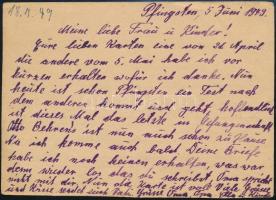 18.1.49
Pfingsten, 5 Juni 1949.
Meine liebe Frau u Kinder!
Eure lieben Karten eine vom 26 April
die andere vom 5. Mai habe ich vor
kurzem erhalten wofür ich danke. Nun
heute ist schon Pfingsten ein Fest nach
dem anderen kommt und geht, hoffendlich
ist dieses Mal das letzte in Gefangenschaft
Otto Behrens ist nun auch schon zu Hause
Na ich komme auch bald Deine Briefe
habe ich noch keinen erhalten, was war
denn wieder los das du schreibst Oma spricht
nicht mit dir. Nun die Karte ist voll Viele Grüße
und Küsse sendet euch Grüße Oma Opa